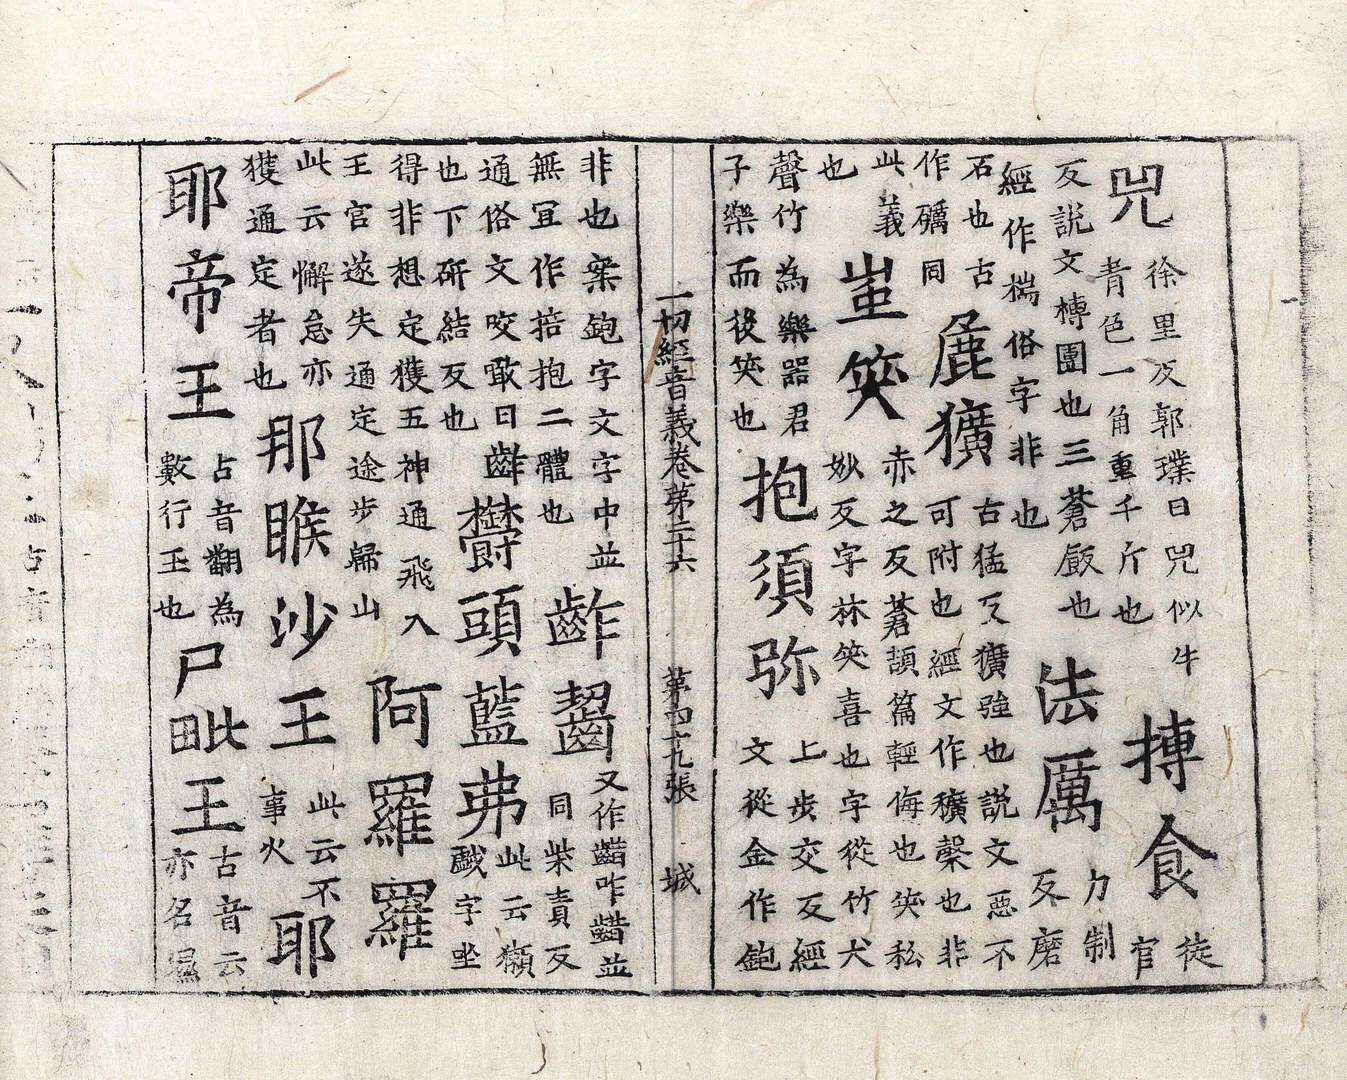 兕徐里反郭璞曰兕似牛青色一角重千斤也摶食徒官
反說文槫團也三蒼飯也經作揣俗字非也法厲力制反磨
石也古作礪同麁獷古猛反獷強也說文惡不可附也經文作穬檗也非
此義也蚩笑赤之反蒼頡篇輕侮也笑私妙反字林笑喜也字從竹犬
聲竹為樂器君子樂而後笑也抱須弥上步交反經文從金作鉋
一切經音義卷第二十六 第四十九張 城
非也案鉋字文字中並無冝作掊抱二體也齚齧又作齰咋齰並同柴責反
通俗文咬敢曰齚也下研結反也欝頭藍弗此云獺戱字坐
得非想定獲五神通飛入王官遂失通定途步歸山阿羅羅
此云懈怠亦獲通定者也那睺沙王此云不事火耶
耶帝王占音翻為數行王也尸毗王古音云亦名濕